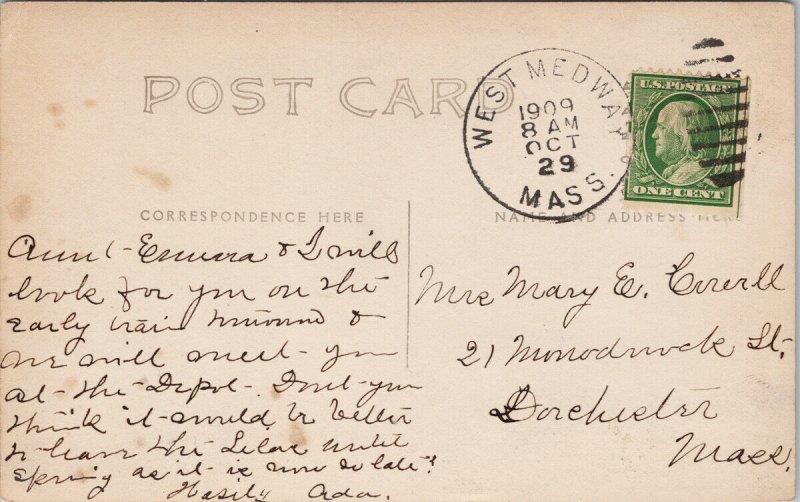 POST CARD
WEST MEDWAY
1909
8 AM
OCT
29
MASS.
U.S. POSTAGE
ONE CENT
CORRESPONDENCE HERE
NAME AND ADDRESS HERE
Aunt Emma & I will
look for you on the
early train &
we will meet you
at the Depot. Don't you
think it would be better
to leave the until
spring as it is now so late?
Hastily Ada.
Mrs Mary E.
21 Monadnock St.
Dorchester
Mass.